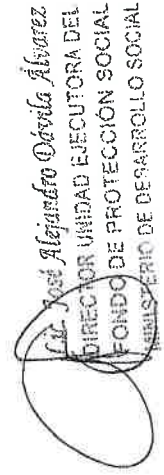 Lic. José Alejandro Dávila Álvarez
DIRECTOR UNIDAD EJECUTORA DEL
FONDO DE PROTECCIÓN SOCIAL
MINISTERIO DE DESARROLLO SOCIAL